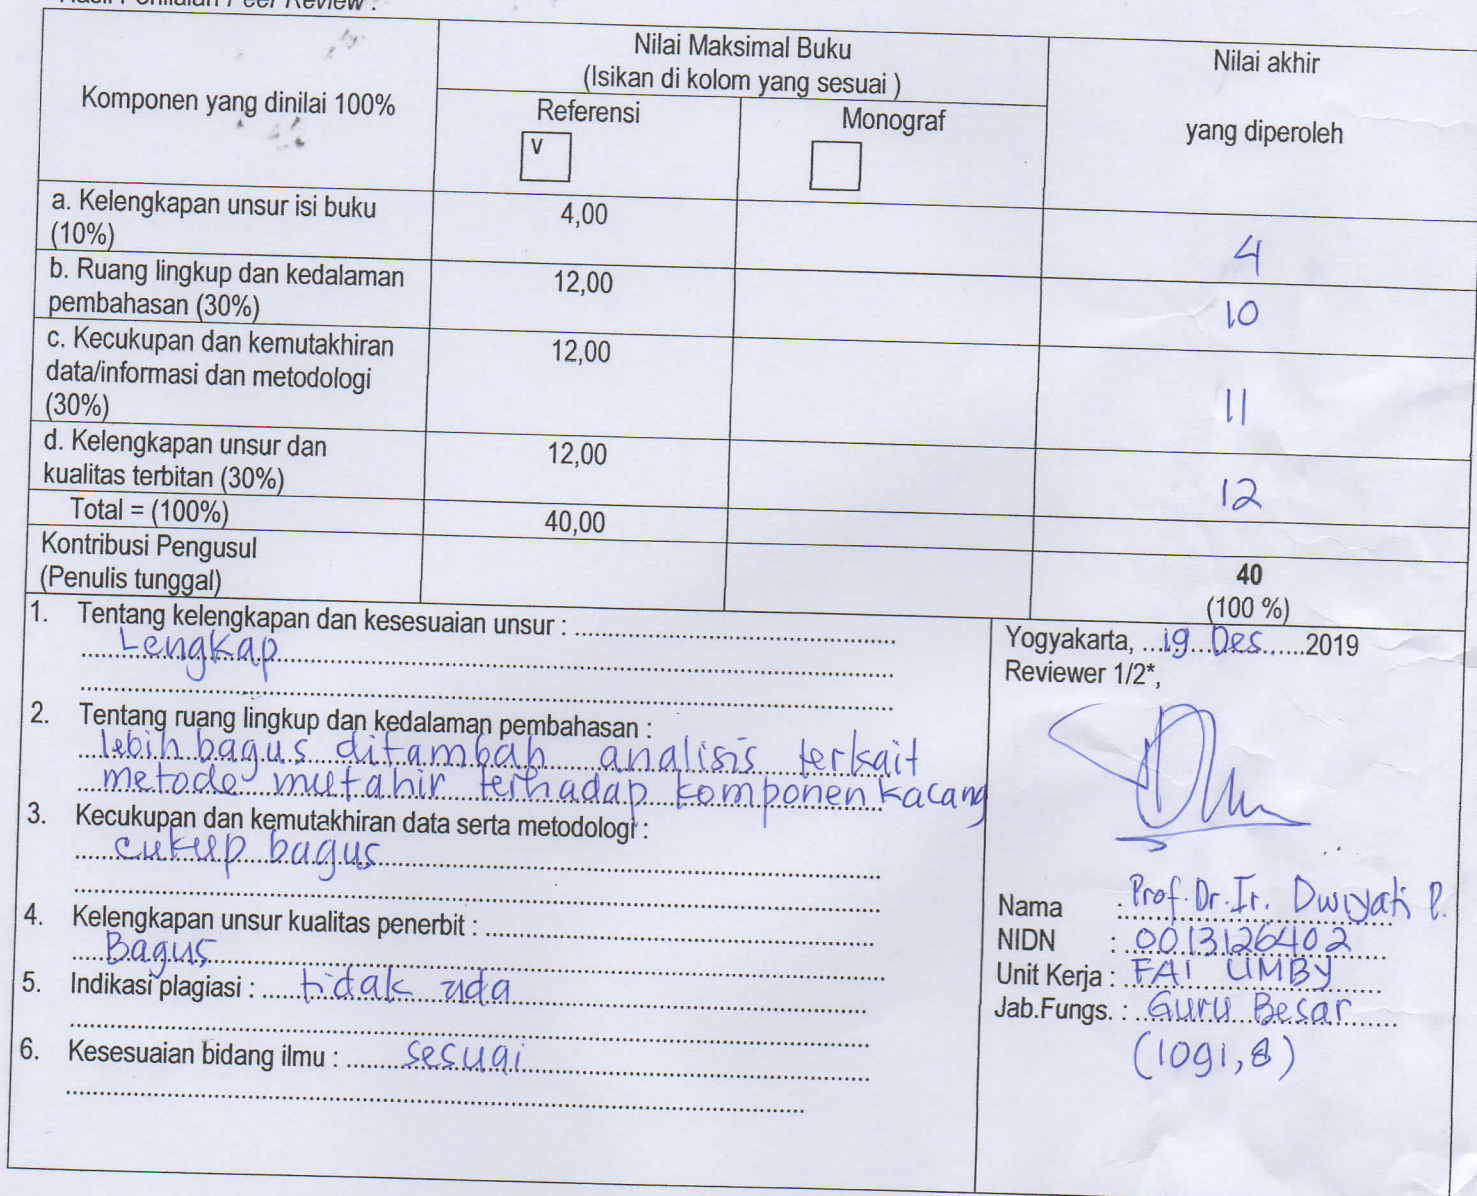 Hasil Penilaian Peer Review :
Komponen yang dinilai 100%
Nilai Maksimal Buku
(Isikan di kolom yang sesuai )
Nilai akhir
yang diperoleh
Referensi
v
Monograf
a. Kelengkapan unsur isi buku
(10%)
4,00
4
b. Ruang lingkup dan kedalaman
pembahasan (30%)
12,00
10
c. Kecukupan dan kemutakhiran
data/informasi dan metodologi
(30%)
12,00
11
d. Kelengkapan unsur dan
kualitas terbitan (30%)
12,00
12
Total = (100%)
40,00
Kontribusi Pengusul
(Penulis tunggal)
40
(100 %)
1. Tentang kelengkapan dan kesesuaian unsur :
Lengkap
2. Tentang ruang lingkup dan kedalaman pembahasan :
lebih bagus ditambah analisis terkait
metode mutahir terhadap komponen kacang
3. Kecukupan dan kemutakhiran data serta metodologi :
cukup bagus
4. Kelengkapan unsur kualitas penerbit :
Bagus
5. Indikasi plagiasi : tidak ada
6. Kesesuaian bidang ilmu : sesuai
Yogyakarta, 19 Des 2019
Reviewer 1/2*,
Nama : Prof. Dr. Ir. Dwiyati P.
NIDN : 0013126402
Unit Kerja : FAI UMBY
Jab.Fungs. : Guru Besar
(1091,8)